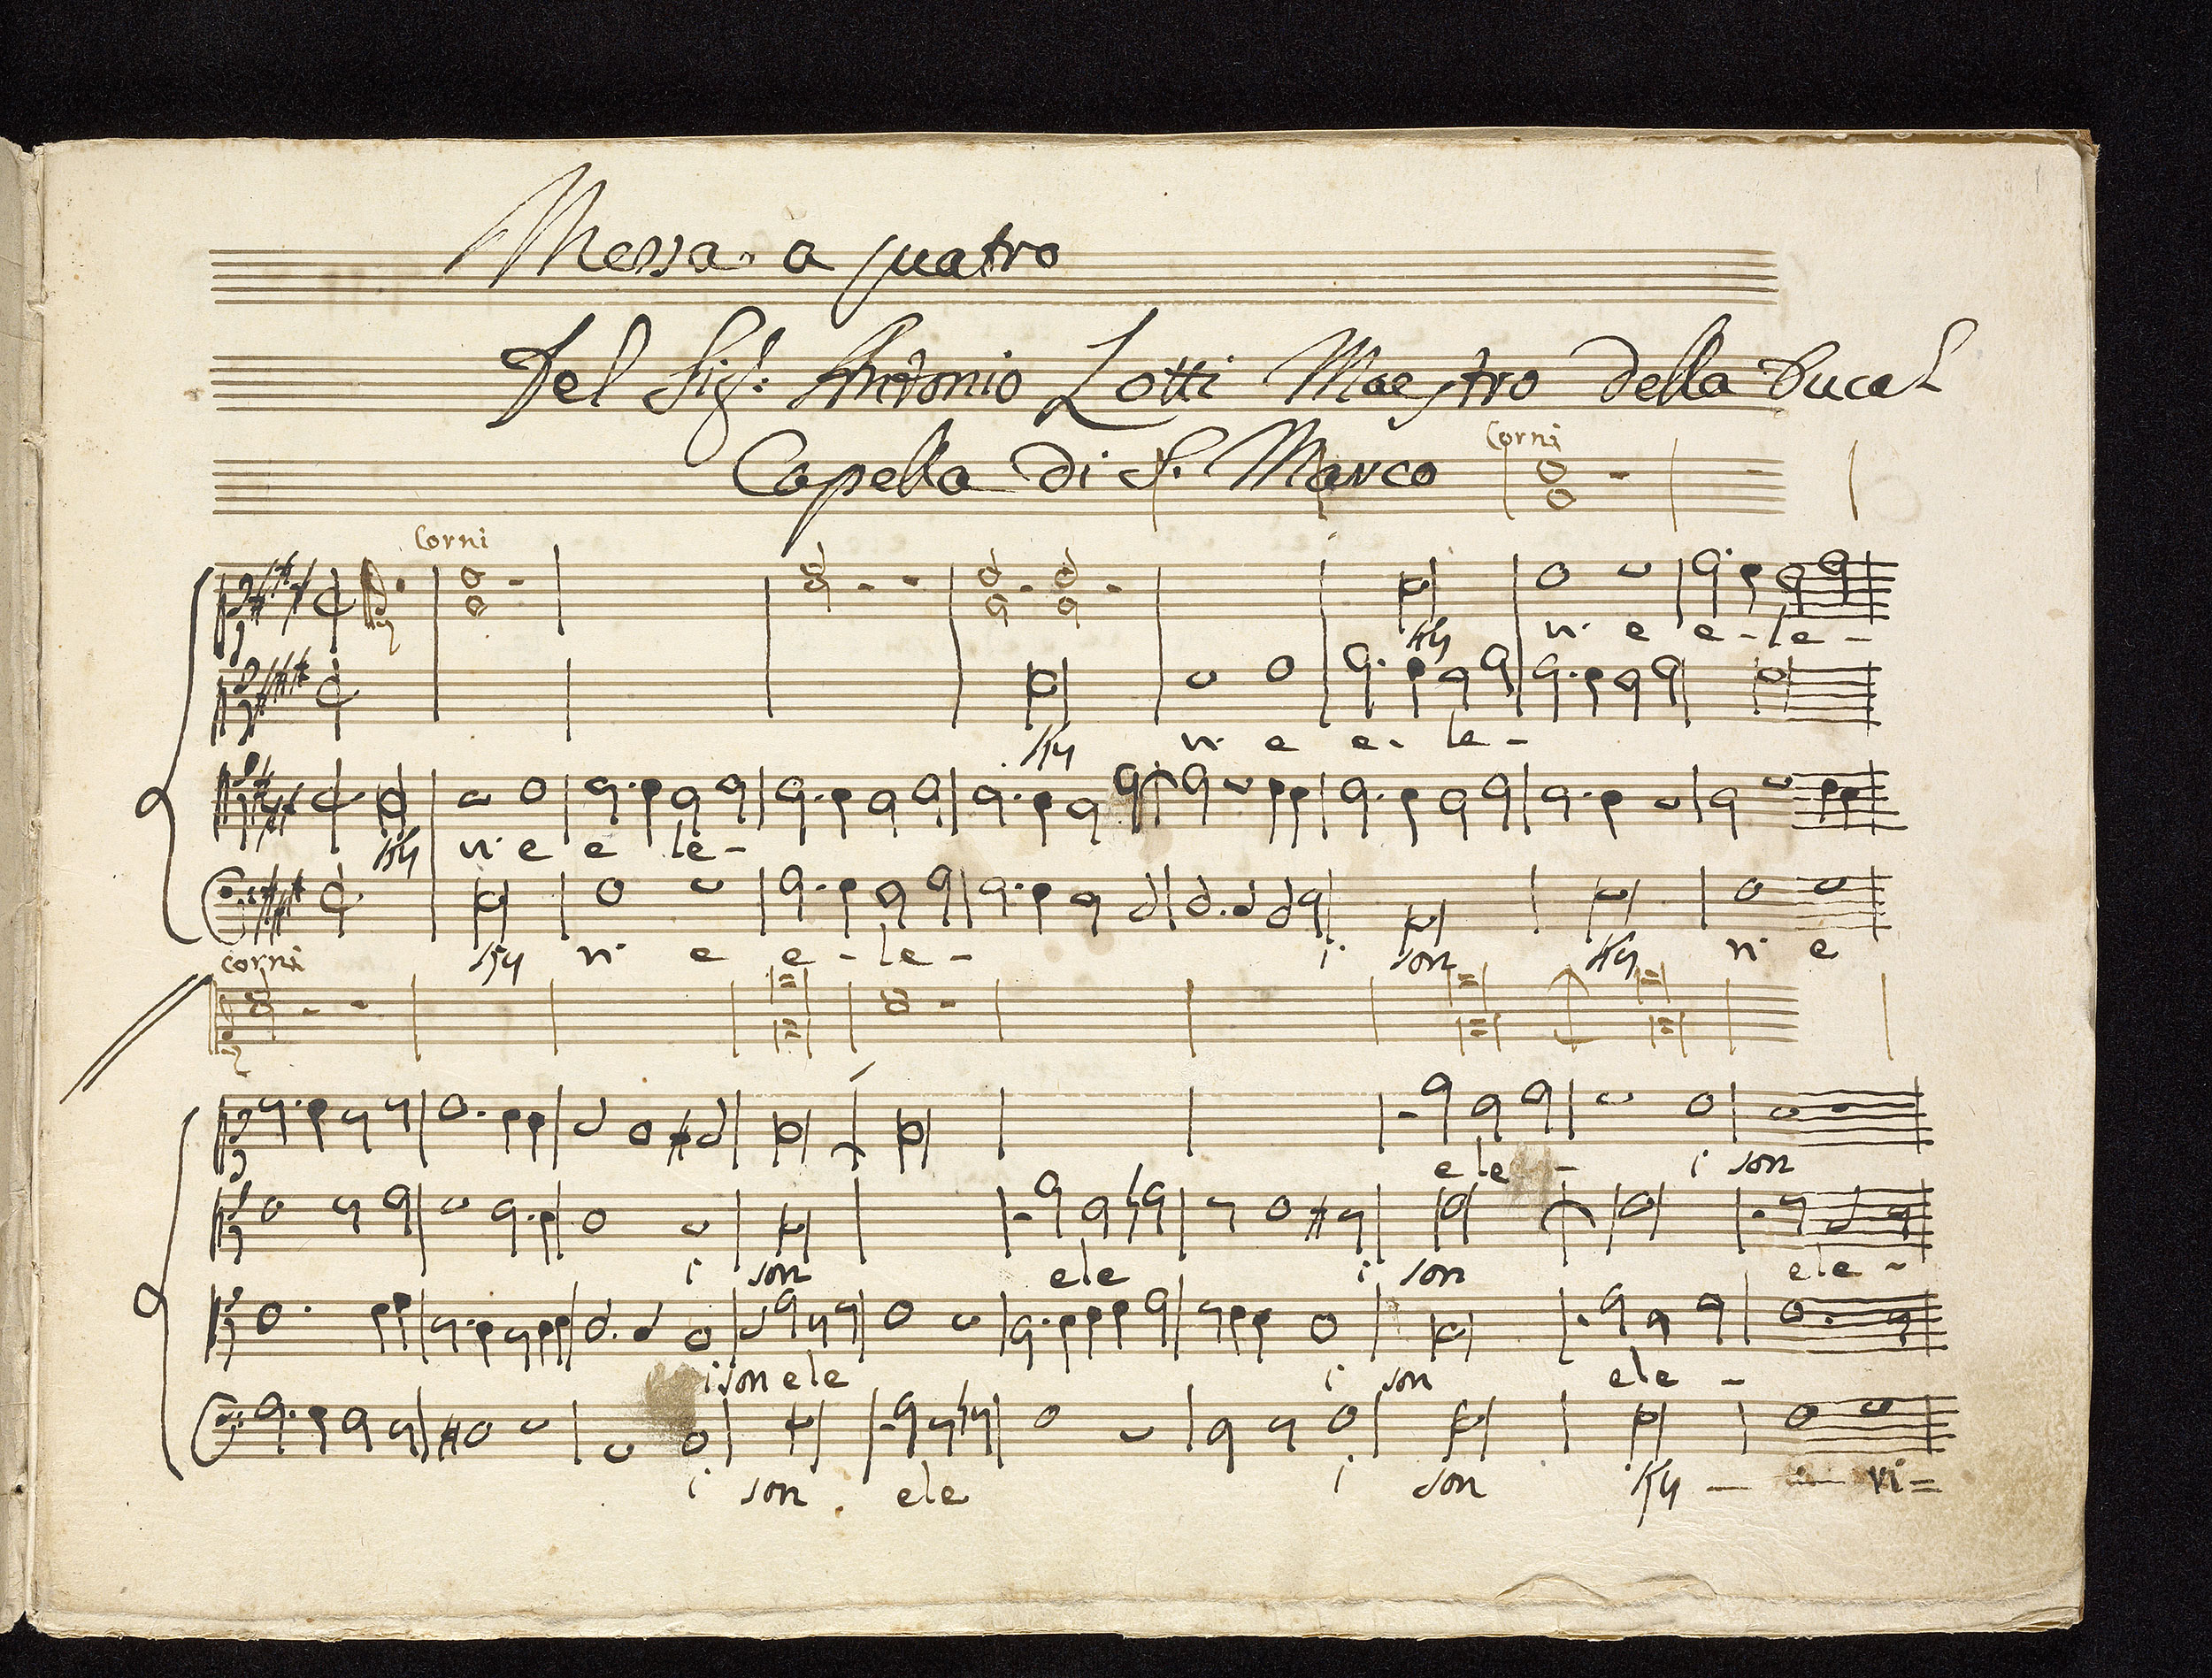 Messa a quatro
Del Sigr: Antonio Lotti Maestro della Ducal
Capella di S. Marco
Corni
Corni
Ky ri e e - le -
Ky ri e e - le -
Ky ri e e le -
Ky ri e e - le - i son Ky ri e
corni
e le - i son
i son ele i son ele -
i son ele i son ele -
i son ele i son Ky - ri =